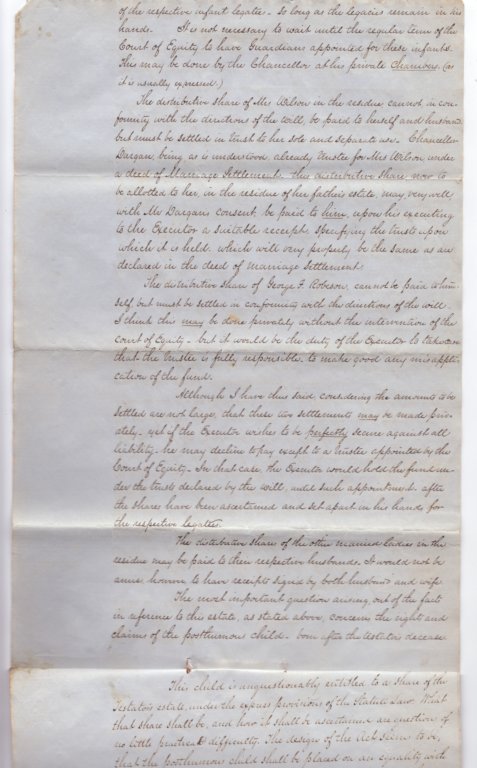 of the respective infant legatees - so long as the legacies remain in his
hands. It is not necessary to wait until the regular term of the
Court of Equity to have Guardians appointed for these infants.
This may be done by the Chancellor at his private Chambers. (as
it is usually expressed.)
The distributive share of Mrs Wilson in the residue cannot, in con-
formity with the directions of the will, be paid to herself and husband
but must be settled in trust to her sole and separate use. Chancellor
Dargan, being, as is understood, already trustee for Mrs Wilson, under
a deed of Marriage Settlement, this distributive share, now to
be allotted to her, in the residue of her father's estate, may very well,
with Mr Dargans consent, be paid to him, upon his executing
to the Executor a suitable receipt, specifying the trusts upon
which it is held, which will very properly be the same as are
declared in the deed of Marriage Settlement
The distributive share of George F. Robeson, cannot be paid to him-
self, but must be settled in conformity with the directions of the will
I think this may be done privately without the intervention of the
court of Equity - but it would be the duty of the Executor to take care
that the trustee is fully responsible to make good any misappli-
cation of the fund.
Although I have thus said, considering the amounts to be
settled are not large, that these two settlements may be made pri-
vately - yet if the Executor wishes to be perfectly secure against all
liability, he may decline to pay except to a trustee appointed by the
Court of Equity - In that case, the Executor would hold the fund un-
der the trusts declared by the will, until such appointment, after
the shares have been ascertained and set apart in his hands for
the respective legatees.
The distributive shares of the other married ladies in the
residue may be paid to their respective husbands. It would not be
amiss, however, to have receipts signed by both husband and wife
The most important question arising out of the facts
in reference to this estate, as stated above, concern the right and
claims of the posthumous child - born after the testators decease
This child is unquestionably entitled to a share of the
Testators estate, under the express provisions of the Statute Law. What
that share shall be, and how it shall be ascertained are questions of
no little practical difficulty. The design of the Act seems to be,
that the posthumous child shall be placed on an equality with